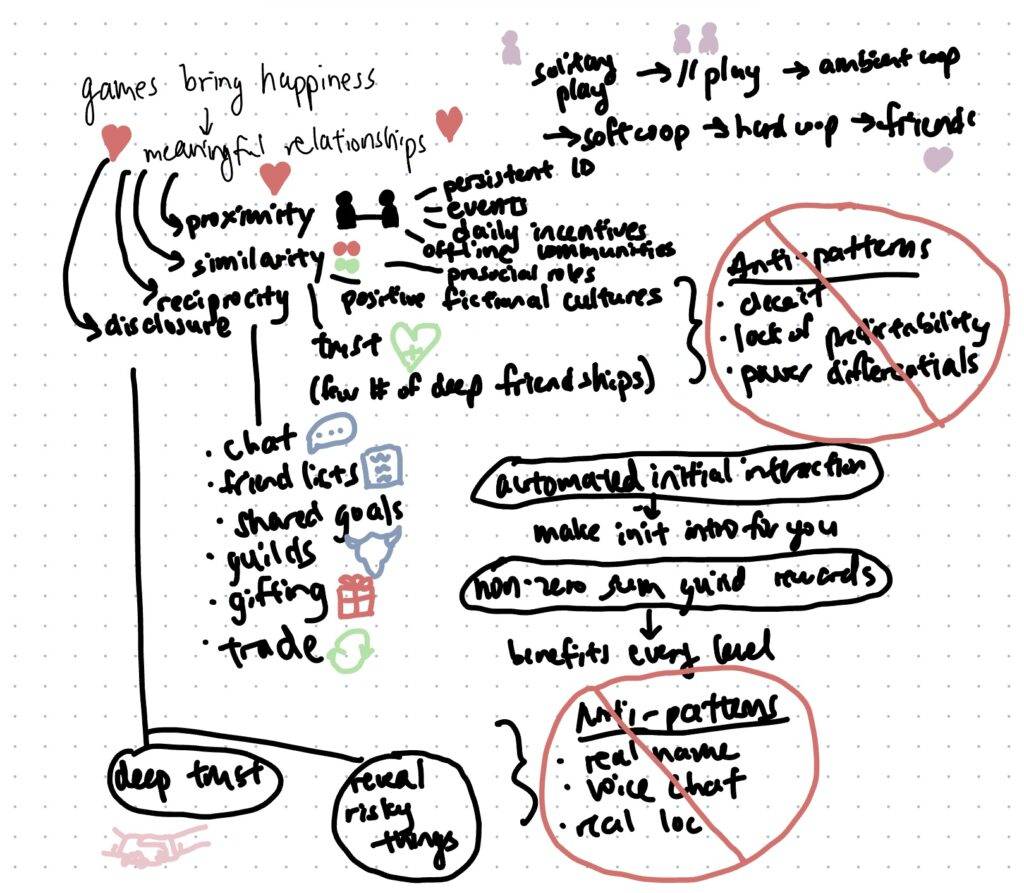 games bring happiness
meaningful relationships
solitary play → // play → ambient coop
→ soft coop → hard coop → friends
proximity
persistent ID
events
daily incentives
offline communities
similarity
prosocial roles
positive fictional cultures
reciprocity
disclosure
trust
(few # of deep friendships)
Anti-patterns
· deceit
· lack of predictability
· power differentials
· chat
· friend lists
· shared goals
· guilds
· gifting
· trade
automated initial interaction
make init intro for you
non-zero sum guild rewards
benefits every level
deep trust
reveal
risky
things
Anti-patterns
· real name
· voice chat
· real loc